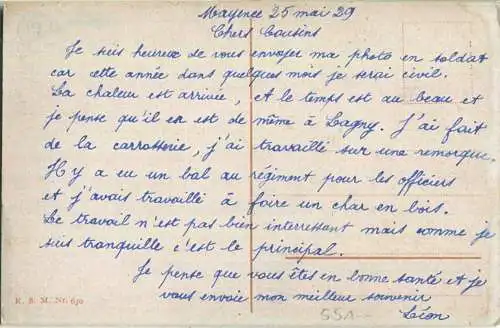 Mayence 25 mai 29
Chers Cousins
Je suis heureux de vous envoyer ma photo en soldat
car cette année dans quelques mois je serai civil.
La chaleur est arrivée, et le temps est au beau et
je pense qu'il en est de même à Lagny. J'ai fait
de la carrosserie, j'ai travaillé sur une remorque,
Il y a eu un bal au régiment pour les officiers
et j'avais travaillé à faire un char en bois.
Le travail n'est pas bien interressant mais comme je
suis tranquille c'est le principal.
Je pense que vous êtes en bonne santé et je
vous envoie mon meilleur souvenir
Léon
K. B. M. Nr. 690
551-